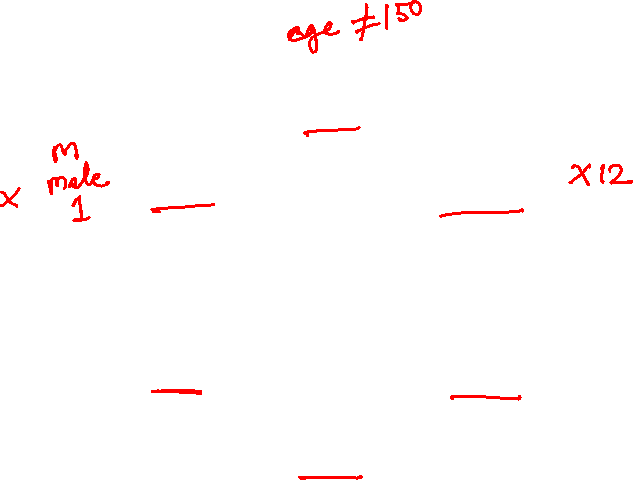 age ≠150
m
male
x
1
x12